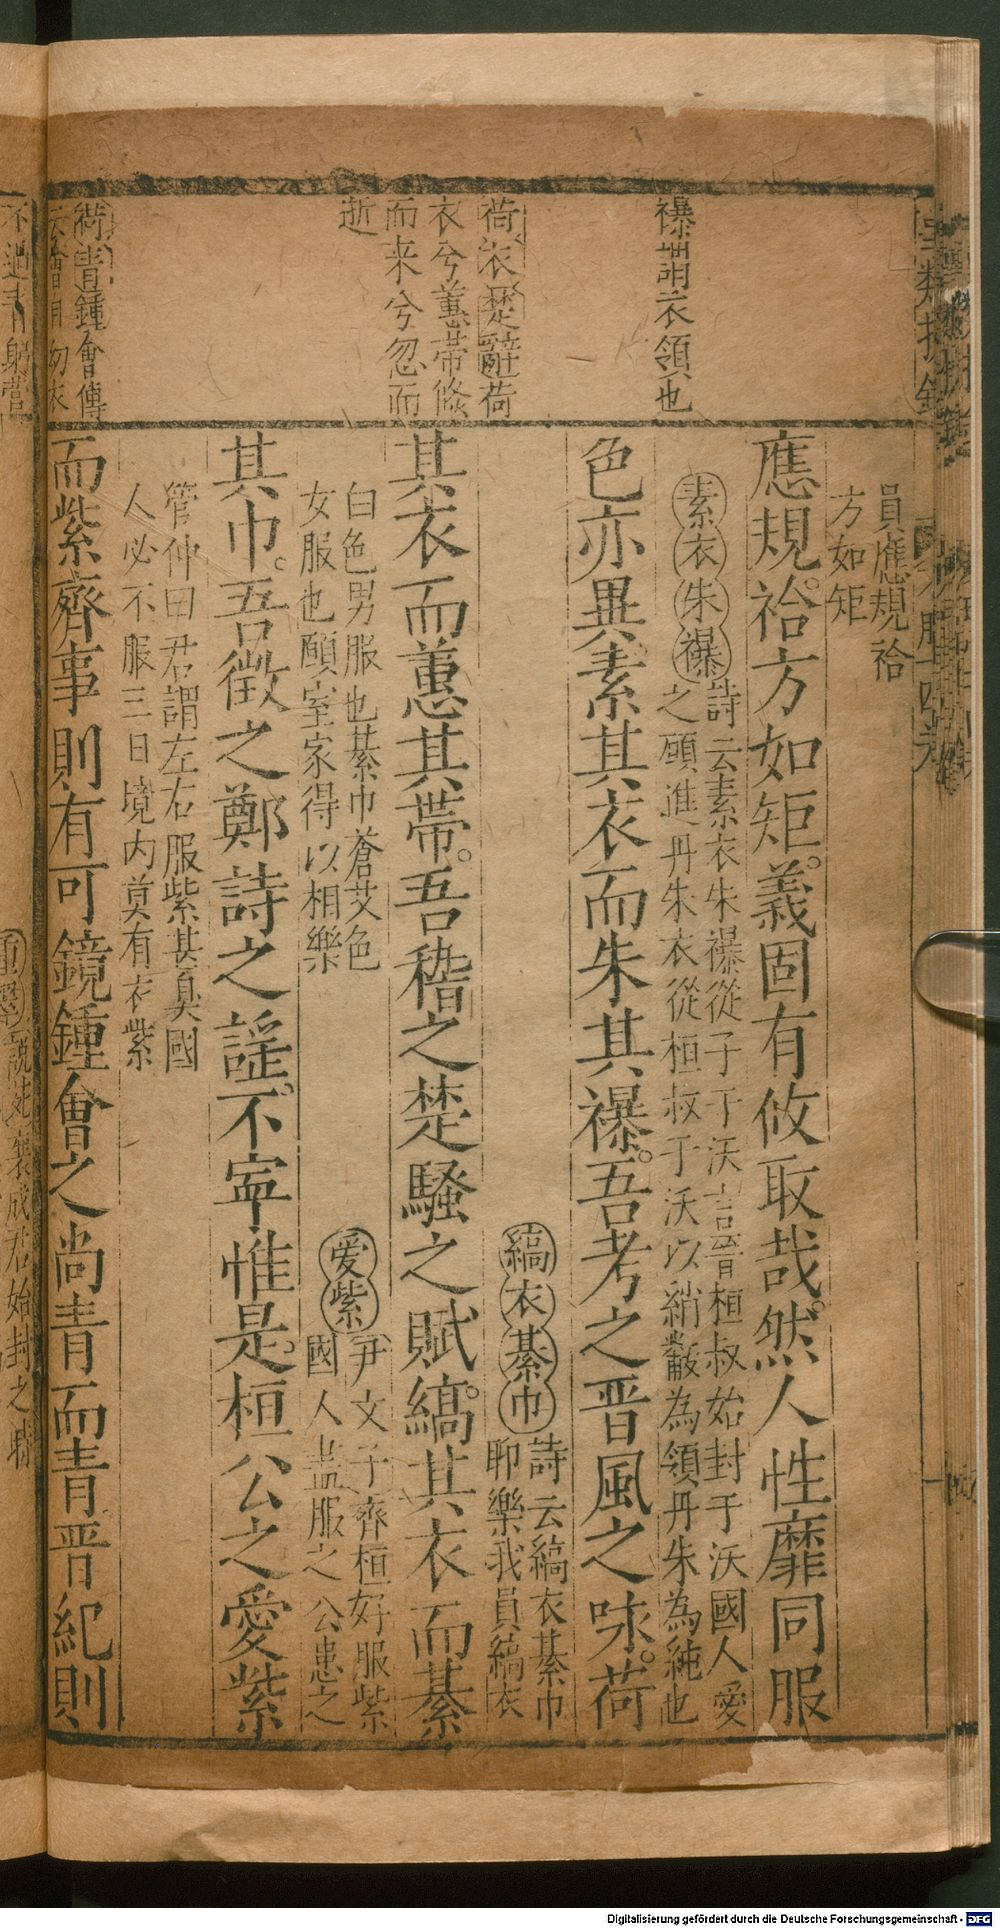 員應規袷
方如矩
應規袷方如矩義固有攸取哉然人性靡同服
素衣朱襮
詩云素衣朱襮從子于沃言晉桓叔始封于沃國人愛
之願進丹朱衣從桓叔于沃以綃黻為領丹朱為純也
色亦異素其衣而朱其襮吾考之晋風之咏荷
縞衣綦巾
詩云縞衣綦巾
聊樂我員縞衣
其衣而蕙其帶吾稽之楚騷之賦縞其衣而綦
白色男服也綦巾蒼艾色
女服也願室家得以相樂
愛紫
尹文子齊桓好服紫
國人盡服之公患之
其巾吾徵之鄭詩之謡不寧惟是桓公之愛紫
管仲曰君謂左右服紫甚臭國
人必不服三日境内莫有衣紫
而紫齊事則有可鏡鍾會之尚青而青晋紀則
襮謂衣領也
荷衣楚辭荷
衣兮蕙帶倐
而来兮忽而
逝
尚青鍾會傳
説苑襄成君始封之
Digitalisierung gefördert durch die Deutsche Forschungsgemeinschaft - DFG